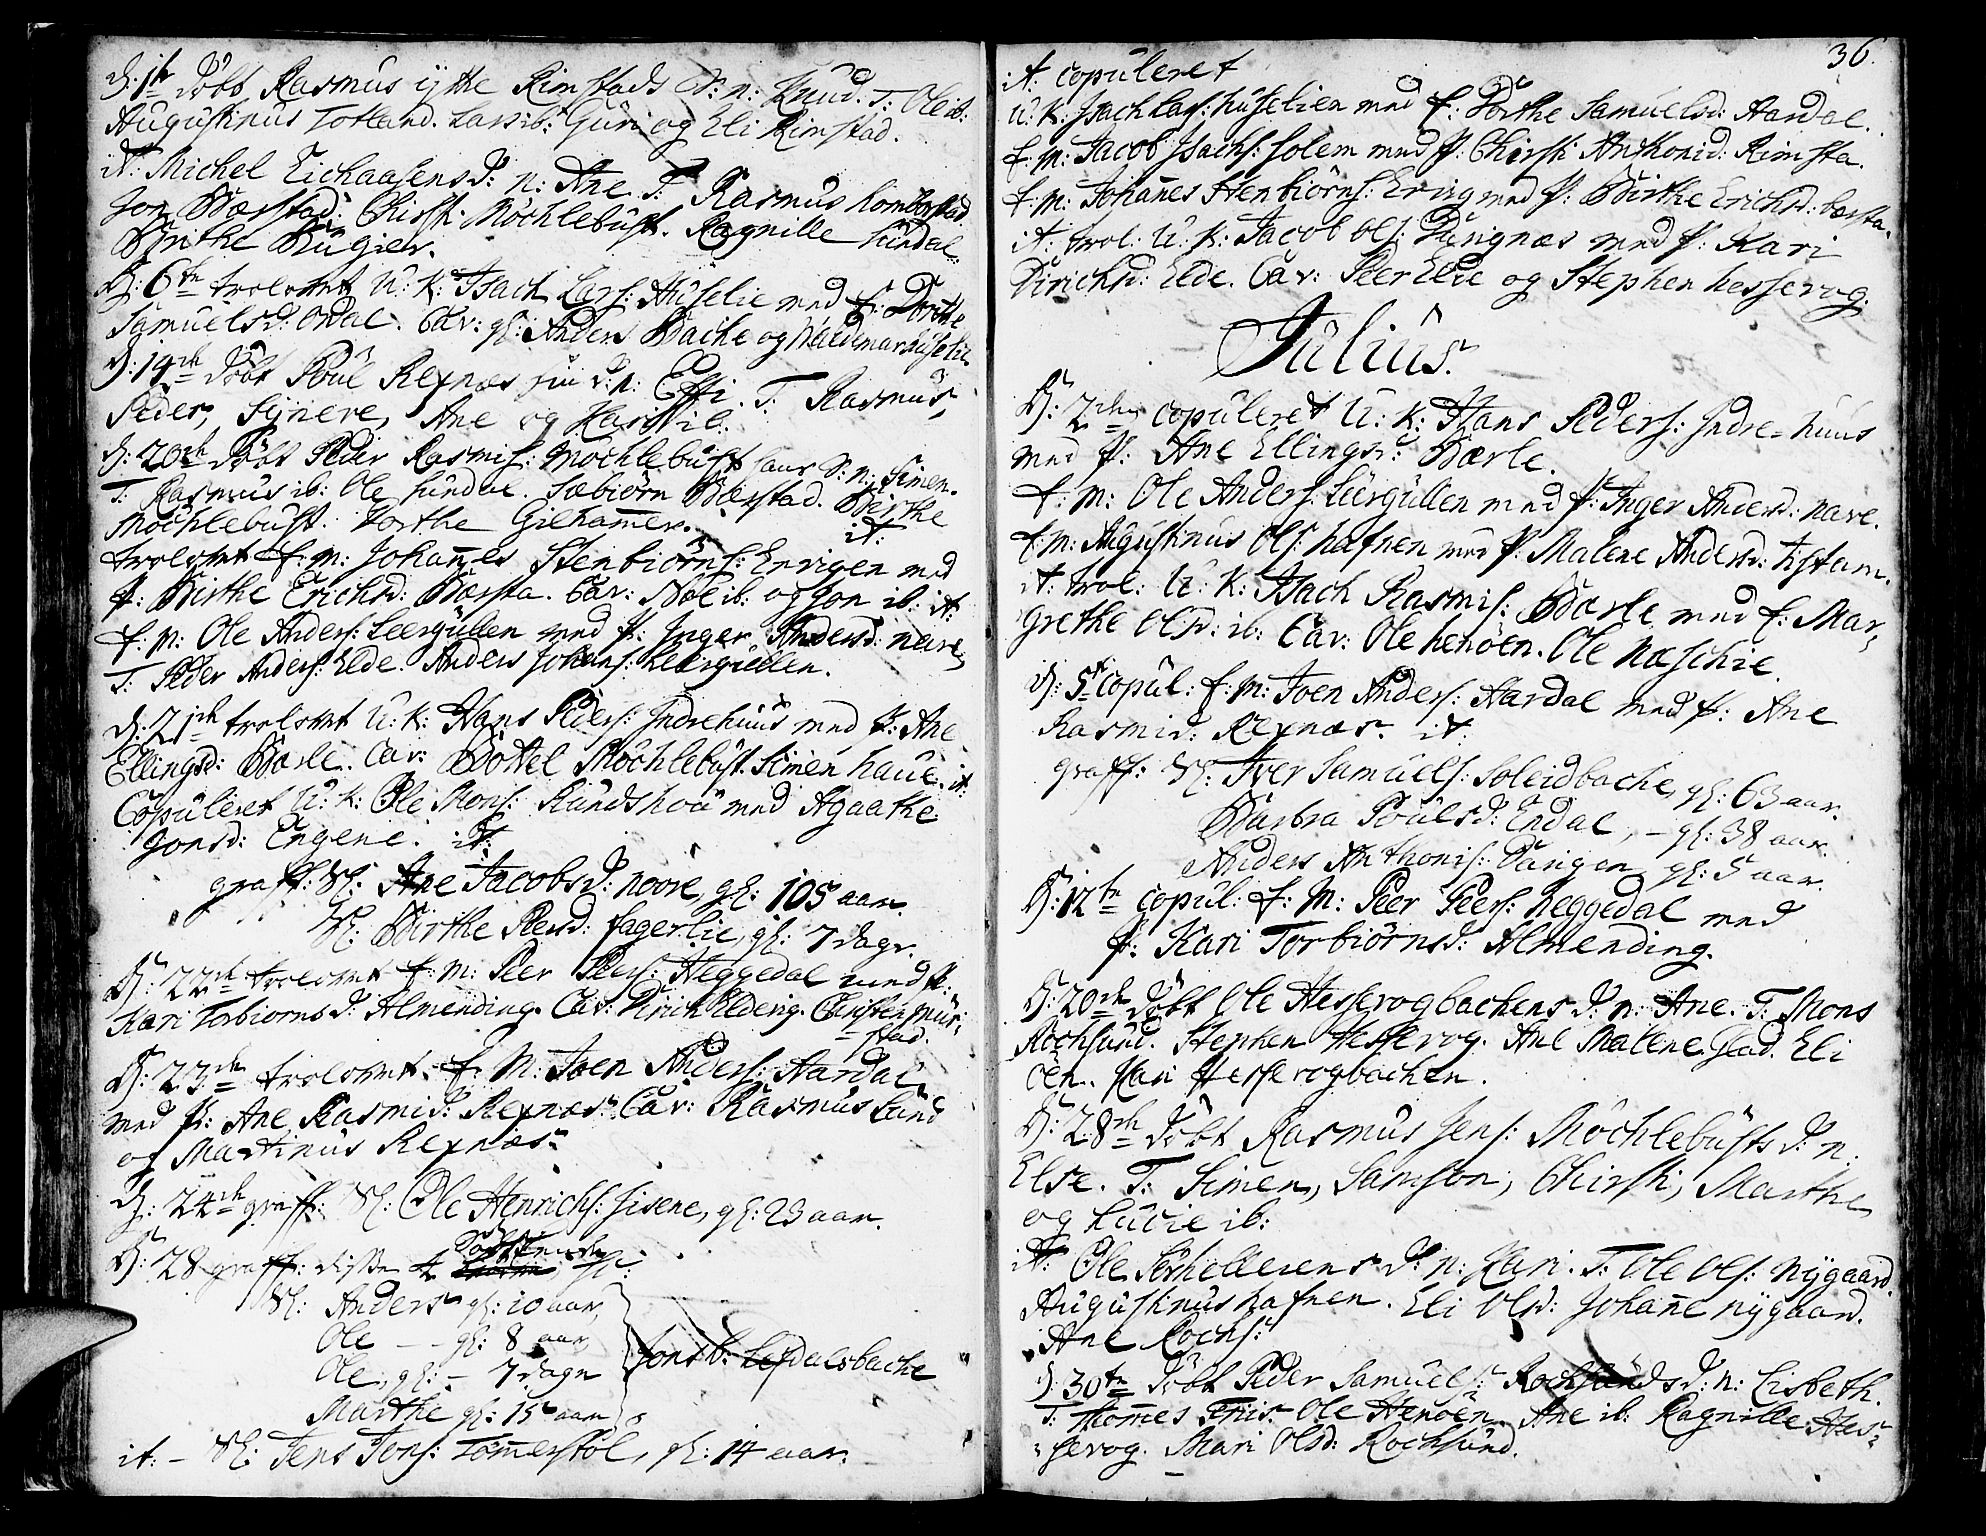 D: 1te döbt Rasmus ytte Rimstads S: n: Knud. T: Ole ib:
Augustinus Totland. Lars ib: Guri og Eli Rimstad.
it: Michel Eichaasens D: n: Ane T: Rasmus
Jon Bærstad. Chirsti Möchlebust. Ragnille Sundal
Birthe
D: 6te trolovet U: K: Isach Lars: Huselie med f: Dorthe
Samuelsd: Ordal. Cav: gl: Anders Bache og Waldemar Huselie
D: 19de döbt Poul Rexnes sin D: n: Effi. T: Rasmus,
Peder, Synere, Ane og Kari ib:
D: 20de döbt Peder Rasmis: Möchlebust hans S: n: Simen.
T: Rasmus ib: Ole Sundal. Sæbiörn Bærstad. Birthe
Möchlebust. Dorthe Gilhammer. it:
trolovet f: m: Johannes Stenbiörns: Ervigen med
P: Birthe Erichsd: Bærsta. Cav: Noe ib: og Jon ib: it:
f: m: Ole Anders: Leergullen med P: Inger Andersd: nare
T: Peder Anders: Elde. Anders Johans: Leergullen.
D: 21de trolovet U: K: Hans Peders: Indrehuus med P: Ane
Ellingsd: Bærle. Cav: Bottel Möchlebust. Simen Haue. it:
Copuleret U: K: Ole Mons: Rundshou med Agaathe
Jonsd: Engene. it:
graff: Sl: Ane Jacobsd: nore, gl: 105 aar.
Sl: Birthe Persd: fagerlie, gl: 7 dage.
D: 22de trolovet f: m: Peer Peers: Heggedal med P:
Kari Torbiornsd: Almending. Cav: Dirich Elding. Christen Mür=
=stad.
D: 23de trolovet f: M: Joen Anders: Aardal
med P: Ane Rasmisd: Rexnes. Cav: Rasmus Lund
og Martinus Rexnæs.
D: 24de graff: Sl: Ole Henrichs: Sisene, gl: 23 aar.
D: 28 graff: disse 4 Södskende
Sl: Anders gl: 10 aar,
Ole - - gl: 8 aar
Ole, gl: - 7 dage
Marthe gl: 15 aar
Jons b: Lefdalsbache
it: - Sl: Jens Jons: Tommerstöl, gl: 14 aar.
36.
it: copuleret
U: K: Isach Lars: Huselien med f: Dorthe Samuelsd: Aardal.
f: m: Jacob Isachs: Solem med P: Chirsti Anthonid: Rimsta.
f: m: Johannes Stenbiörns: Erwig med P: Birthe Erichsd: bærsta.
it: trol: U: K: Jacob Ols: Durignæs med P: Kari
Dirichsd: Elde. Cav: Peer Elde og Stephen Hessevog.
Julius.
D: 2den copuleret U: K: Hans Peders: Indre=huus
med P: Ane Ellingsd: Bærle.
f: m: Ole Anders: Leergullen med P: Inger Andersd: nare.
f: m: Augustinus Ols: Hafnen med P: Malene Andersd: Tistam.
it: trol: U: K: Isach Rasmis: Bærle med f: Mar=
grethe Olsd: ib: Cav: Ole Henöen. Ole Næschie.
D: 5te copul: f: m: Joen Anders: Aardal med P: Ane
Rasmisd: Rexnæs. it:
graff: Sl: Iver Samuels: Soleidbache, gl: 63 aar.
Barbra Poulsd: Endal, - gl: 38 aar.
Anders Anthonis: Darigen gl: 5 aar.
D: 12te copul: f: M: Peer Peers: Heggedal med
P: Kari Torbiörnsd: Almending.
D: 20de döbt Ole Hessevogbachens D: n: Ane. T: Mons
Rochsund. Stephen Hessevog. Ane Malene Elad. Eli
öen. Kari Hessevogbachen.
D: 28de döbt Rasmus Jens: Möchlebusts D: n:
Else. T: Simen, Samson, Chirsti, Marthe
og Lucie ib:
it: Ole Sörhellerens D: n: Kari. T: Ole Ols: Nygaard.
Augustinus Hafnen. Eli Olsd: Johanne Nygaard.
Ane Rochs:
D: 30te döbt Peder Samuels: Rochsunds D: n: Lisbeth.
T: Thommes Friis. Ole Henöen. Ane ib: Ragnille Hes=
=sevog. Mari Olsd: Rochsund.